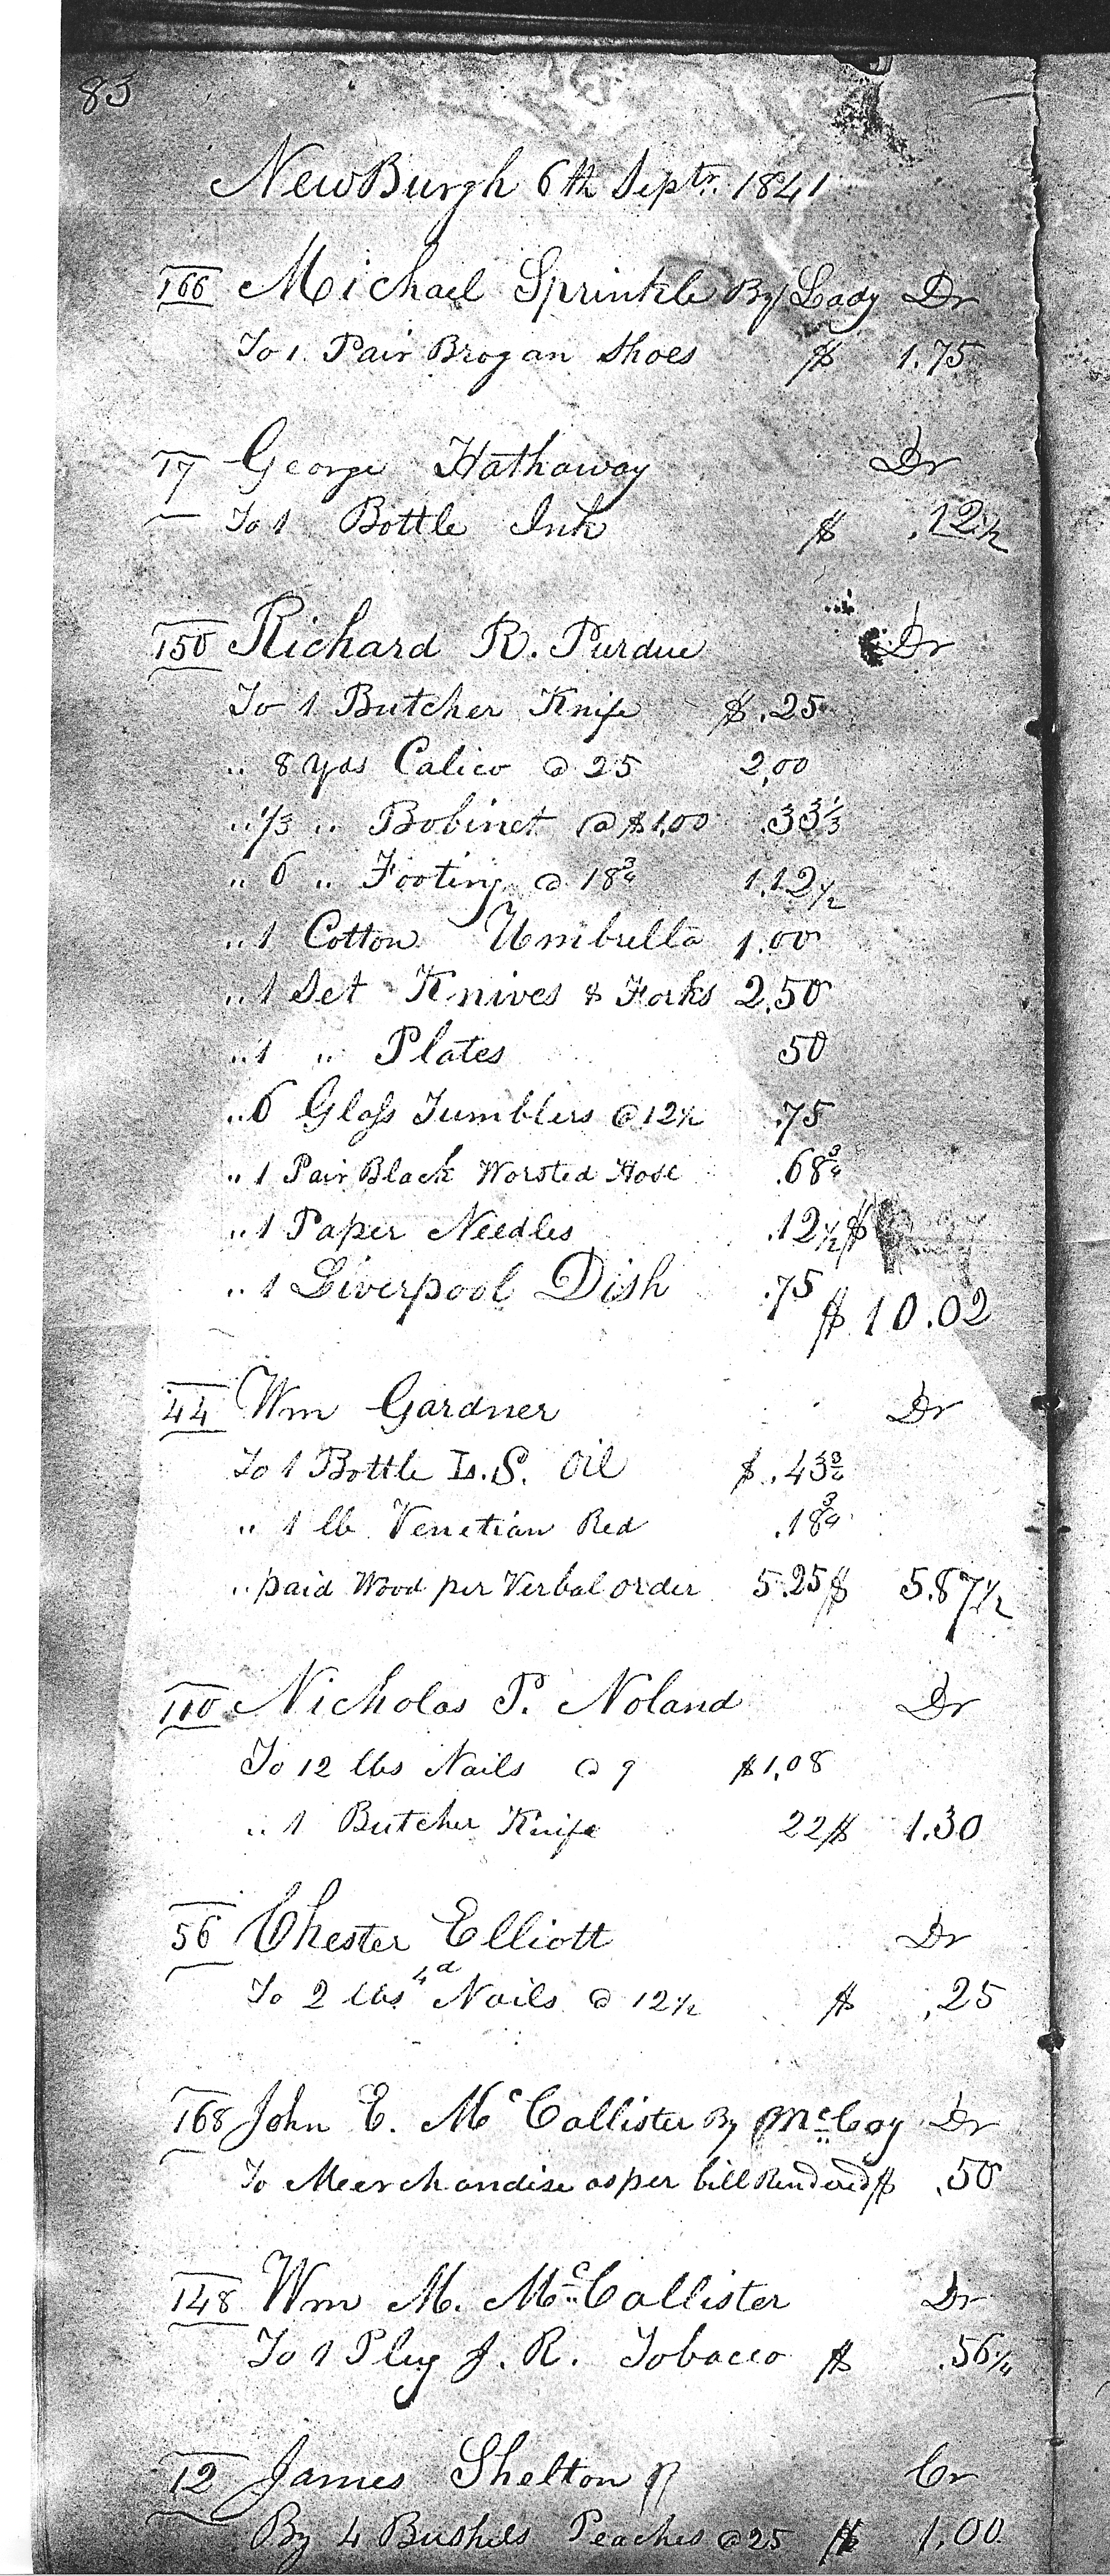 83
NewBurgh 6th Septr. 1841
166 Michael Sprinkle By Lady Dr
To 1 Pair Brogan Shoes $ 1.75
17 George Hathaway Dr
To 1 Bottle Ink $ .12½
150 Richard R. Purdue Dr
To 1 Butcher Knife $ .25
" 8 Yds Calico @ 25 2,00
" ⅓ " Bobinet @ $1,00 .33⅓
" 6 " Footing @ 18¾ 1.12½
" 1 Cotton Umbrella 1.00
" 1 Set Knives & Forks 2,50
" 1 " Plates 50
" 6 Glass Tumblers @ 12½ .75
" 1 Pair Black Worsted Hose .68¾
" 1 Paper Needles .12½ $
" 1 Liverpool Dish .75 $ 10.02
44 Wm Gardner Dr
To 1 Bottle L.S. Oil $ .43¾
" 1 lb Venetian Red .18¾
" paid Wood per Verbal order 5.25 $ 5.87½
110 Nicholas P. Noland Dr
To 12 lbs Nails @ 9 $1,08
" 1 Butcher Knife 22 $ 1.30
56 Chester Elliott Dr
To 2 lbs 4d Nails @ 12½ $ .25
168 John E. McCallister By McCoy Dr
To Meerchandise as per bill Rendered $ .50
148 Wm M. McCallister Dr
To 1 Plug J. R. Tobacco $ .56¼
12 James Shelton Cr
By 4 Bushels Peaches @ 25 $ 1.00